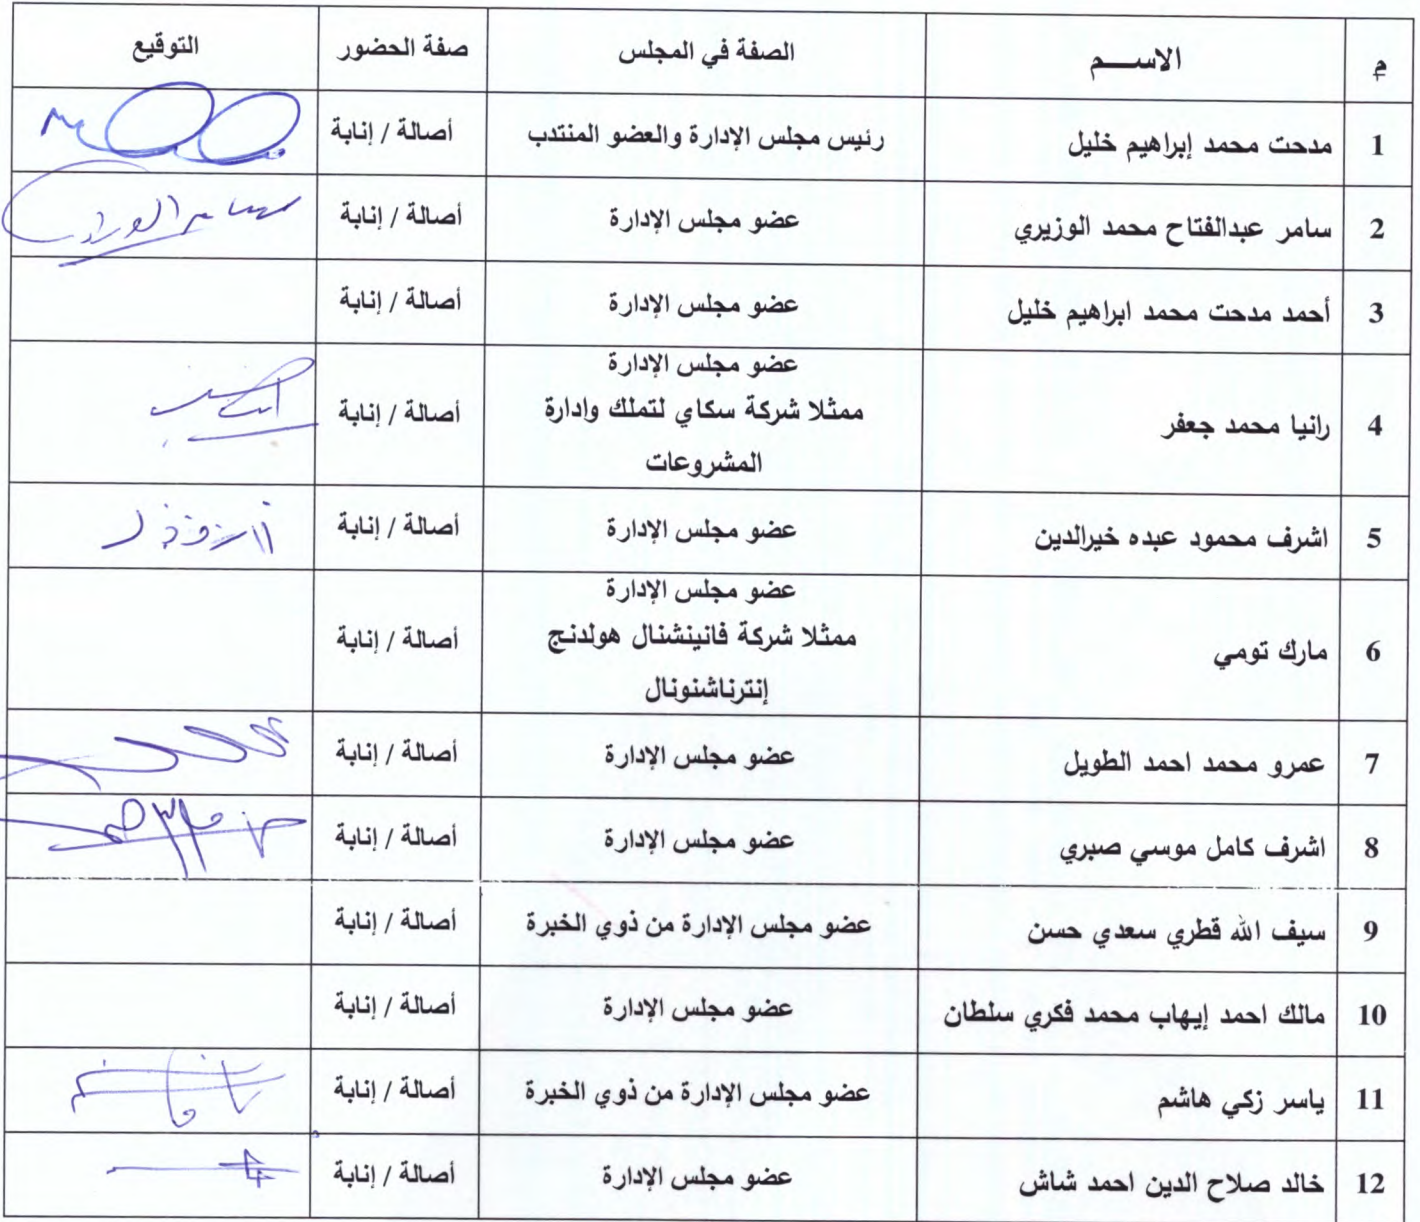 م الاســـم الصفة في المجلس صفة الحضور التوقيع
1 مدحت محمد إبراهيم خليل رئيس مجلس الإدارة والعضو المنتدب أصالة / إنابة
2 سامر عبدالفتاح محمد الوزيري عضو مجلس الإدارة أصالة / إنابة
3 أحمد مدحت محمد ابراهيم خليل عضو مجلس الإدارة أصالة / إنابة
4 رانيا محمد جعفر عضو مجلس الإدارة
ممثلا شركة سكاي لتملك وادارة
المشروعات أصالة / إنابة
5 اشرف محمود عبده خيرالدين عضو مجلس الإدارة أصالة / إنابة
6 مارك تومي عضو مجلس الإدارة
ممثلا شركة فانينشنال هولدنج
إنترناشنونال أصالة / إنابة
7 عمرو محمد احمد الطويل عضو مجلس الإدارة أصالة / إنابة
8 اشرف كامل موسي صبري عضو مجلس الإدارة أصالة / إنابة
9 سيف الله قطري سعدي حسن عضو مجلس الإدارة من ذوي الخبرة أصالة / إنابة
10 مالك احمد إيهاب محمد فكري سلطان عضو مجلس الإدارة أصالة / إنابة
11 ياسر زكي هاشم عضو مجلس الإدارة من ذوي الخبرة أصالة / إنابة
12 خالد صلاح الدين احمد شاش عضو مجلس الإدارة أصالة / إنابة